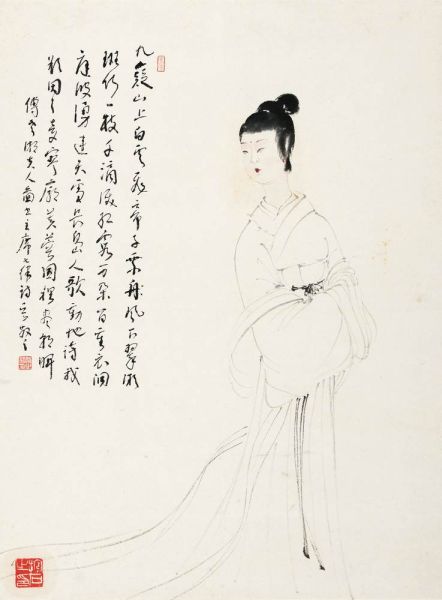 九嶷山上白雲飛帝子乘風下翠微
斑竹一枝千滴淚紅霞萬朵百重衣洞
庭波湧連天雪長島人歌動地詩我
欲因之夢寥廓芙蓉國裡盡朝暉
湘夫人 主席 詩
抱石之印